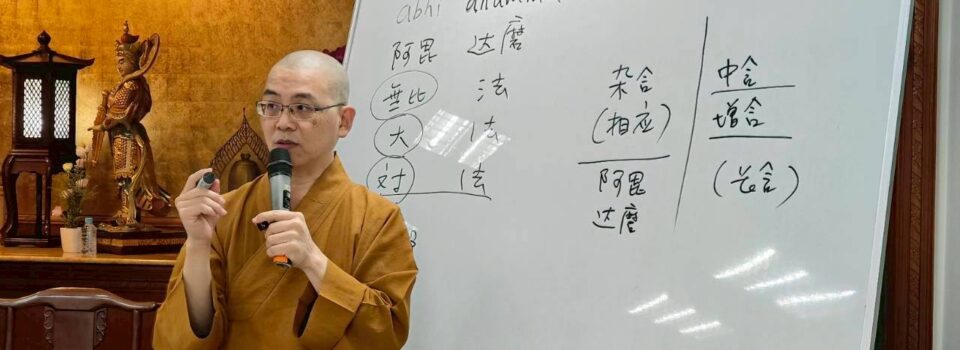 abhi
阿毘 达磨
無比 法
大 法
対 法
杂含
(相应)
阿毘
达磨
中含
增含
(长含)